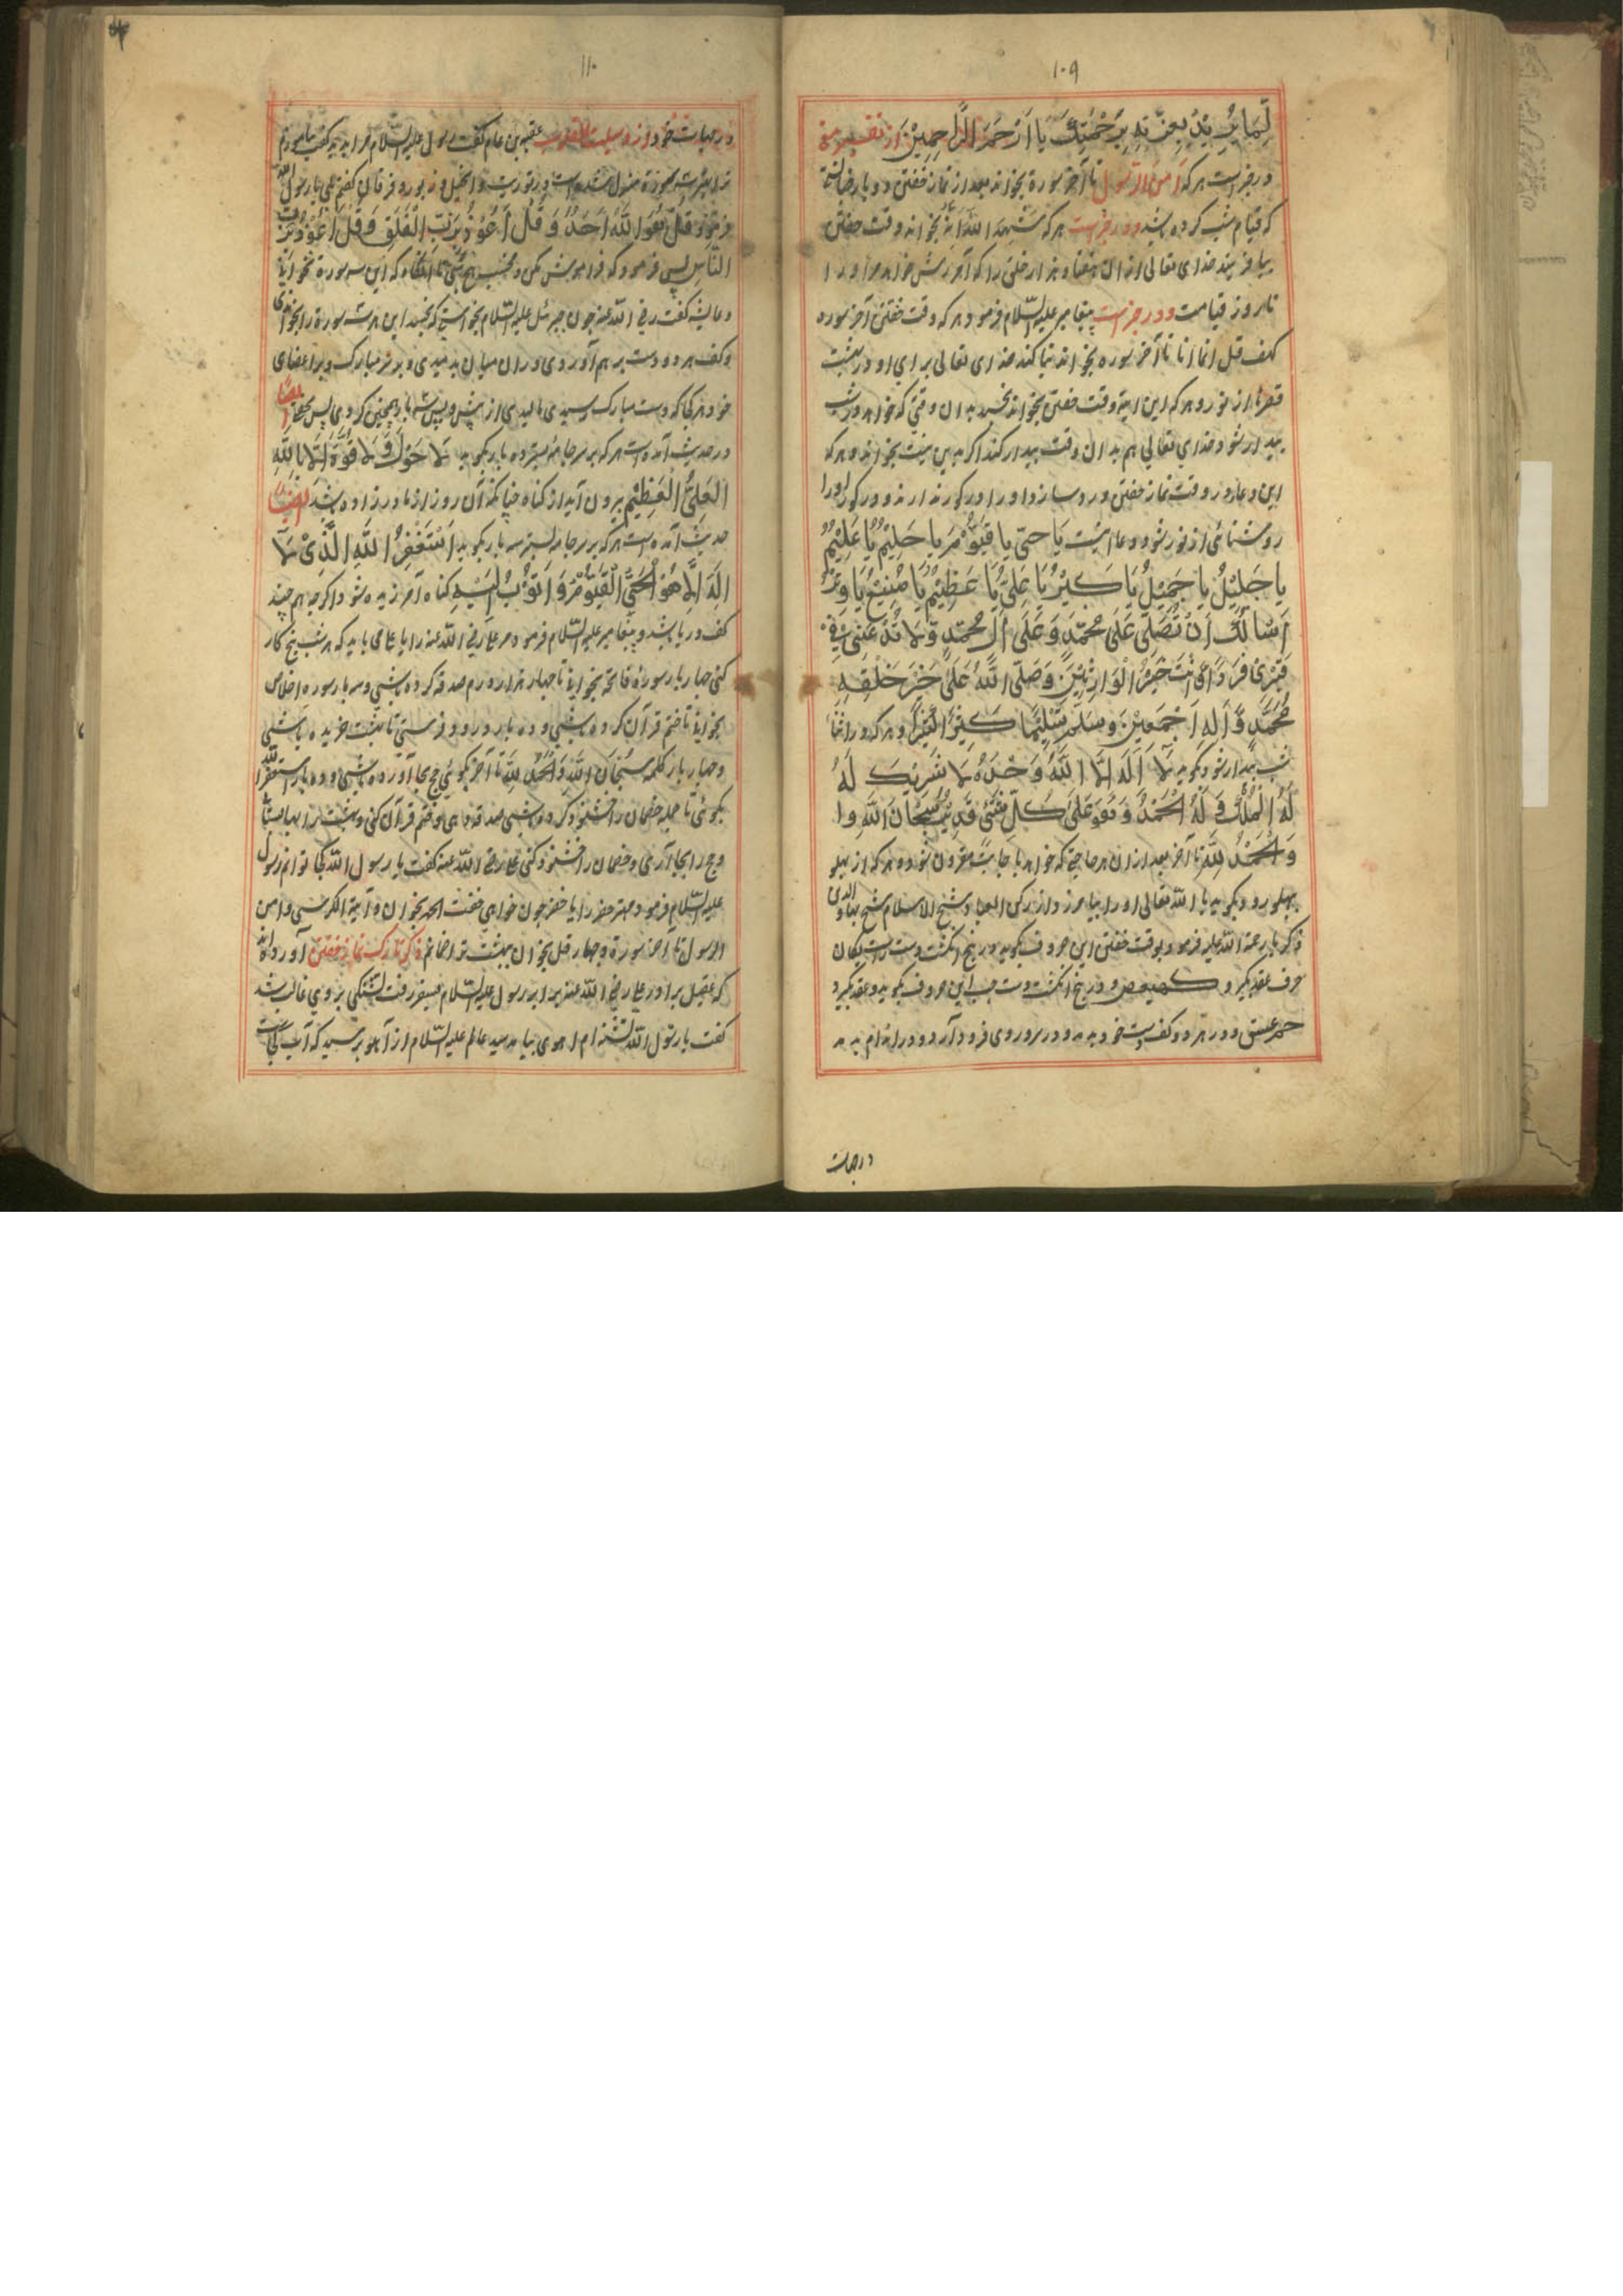 ۱۰۹
لِمَا يُرِيْدُ بِعِزَّتِهِ بِرَحْمَتِكَ يَا اَرْحَمَ الرَّاحِمِيْنَ از تفسير
در خبر است هر که اٰمن الرّسول تا آخر سورة بخواند بعد از نماز خفتن
که قیام شب کرده باشد و در خبر است هر که شَهِدَ اللّٰهُ اَنَّهُ بخواند وقت خفتن
بیافریند خدای تعالی از ان هفتاد هزار خلق را که آمرزش خواهد مر او را
تا روز قیامت و در خبر است پیغامبر علیه السّلام فرمود هر که وقت خفتن آخر سوره
کهف قل انما انا تا آخر سوره بخواند بنا کند خدای تعالی برای او در بهشت
قصرها از نور و هر که این ایة وقت خفتن بخواند بخسبد بدان وقتی که خواهد در شب
بیدار شود خدای تعالی هم بدان وقت بیدار کند اگر بدین نیت بخواند و هر که
این دعا در وقت نماز خفتن
روشنائی از نور شود و دعا اینست يَا حَيُّ يَا قَيُّوْمُ يَا حَلِيْمُ يَا عَلِيْمُ
يَا جَلِيْلُ يَا جَمِيْلُ يَا كَبِيْرُ يَا عَلِيُّ يَا عَظِيْمُ يَا مُنِيْبُ يَا
اَسْاَلُكَ اَنْ تُصَلِّيَ عَلٰى مُحَمَّدٍ وَعَلٰى اٰلِ مُحَمَّدٍ وَلَا تَدَعْنِيْ فِيْ
قَبْرِيْ فَرْدًا وَّ اَنْتَ خَيْرُ الْوَارِثِيْنَ وَصَلَّى اللّٰهُ عَلٰى خَيْرِ خَلْقِهِ
مُحَمَّدٍ وَّاٰلِهِ اَجْمَعِيْنَ وَسَلَّمَ تَسْلِيْمًا كَثِيْرًا كَثِيْرًا و هر که در اثناء
شب بیدار شود بگوید لَا اِلٰهَ اِلَّا اللّٰهُ وَحْدَهُ لَا شَرِيْكَ لَهُ
لَهُ الْمُلْكُ وَ لَهُ الْحَمْدُ وَهُوَ عَلٰى كُلِّ شَيْءٍ قَدِيْرٌ سُبْحَانَ اللّٰهِ وا
وَالْحَمْدُ لِلّٰهِ تا آخر بعد از ان هر حاجتی که خواهد باجابت مقرون شود و هر که از پهلو
بهلو رود بگوید یا اللّه تعالی او را بیامرزد و از رکن العباد شیخ الاسلام شیخ بهاء الدین
ذکریا رحمة اللّه علیه فرمود بوقت خفتن این حروف بگوید در پنج انکشت دست راست یکان
حرف عقد بگیرد کهیعص و در پنج انکشت دست چپ این حروف بگوید و عقد بگیرد
حمعسق و در هر دو کف دست خود بدمد و در سر و روی فرود آرد و در اندام بدمد
درحیات
۱۱۰
در حیات خود و از وسیلت القلوب عقبة بن عامر گفت رسول علیه السّلام مرا بدید گفت بیاموزم
ترا بهترین سه سورة منزل شده است در توریت و انجیل و زبور و فرقان گفتم بلی یا رسول اللّه
فرمود قُلْ هُوَ اللّٰهُ اَحَدٌ وَ قُلْ اَعُوْذُ بِرَبِّ الْفَلَقِ وَ قُلْ اَعُوْذُ بِرَبِّ
النَّاسِ پس فرمود که فراموش مکن و مخسب هیچ شبی تا انگاه که این سه سورة نخوانی
و عایشه گفت رضی اللّه عنه چون جبرئیل علیه السّلام بخواستی که بخسبد این هر سه سورة را بخواندی
و کف هر دو دست بر هم آوردی و در ان میان بدمیدی و بر سر مبارک و بر اعضای
خود هر کجا که دست مبارک رسیدی مالیدی از پیش و پس سه بار همچنین کردی پس بخفتی ایضا
در حدیث آمده است هر که بر سر جامه بستر ده بار بگوید لَا حَوْلَ وَ لَا قُوَّةَ اِلَّا بِاللّٰهِ
الْعَلِيِّ الْعَظِيْمِ بیرون آید از گناه چنانکه آن روز از مادر زاده باشد ایضا در
حدیث آمده است هر که بر سر جامه بستر سه بار بگوید اَسْتَغْفِرُ اللّٰهَ الَّذِيْ لَا
اِلٰهَ اِلَّا هُوَ الْحَيُّ الْقَيُّوْمُ وَ اَتُوْبُ اِلَيْهِ گناه آمرزیده شود اگرچه هم چند
کف دریا باشد و پیغامبر علیه السّلام فرمود مر علی رضی اللّه عنه را یا علی باید که هر شب پنج کار
کنی چهار بار سورة فاتحه بخوانی تا چهار هزار درم صدقه کرده باشی و سه بار سوره اخلاص
بخوانی تا ختم قرآن کرده باشی و ده بار درود فرستی تا بهشت خریده باشی
و چهار بار کلمه سُبْحَانَ اللّٰهِ وَالْحَمْدُ لِلّٰهِ تا آخر بگوئی حج بجا آورده باشی و ده بار استغفر اللّه
بگوئی تا جمله خصمان را خشنود کرده باشی صدقه دهی و ختم قرآن کنی و بهشت را بها بستانی
و حج را بجا آری و خصمان را خشنود کنی علی رضی اللّه عنه گفت یا رسول اللّه کجا توانم رسول
علیه السّلام فرمود چون خواهی خفت الحمد بخوان و آیة الکرسی و امن
الرسول تا آخر سورة و چهار قل بخوان بهشت ترا ضامنم ذکر تارک نماز خفتن آورده اند
که عقیل برادر علی رضی اللّه عنه برابر رسول علیه السّلام بسفر رفت تشنگی بر وی غالب شد
گفت یا رسول اللّه تشنه ام آهوی بیامد سید عالم علیه السّلام از آهو پرسید که آب کجاست